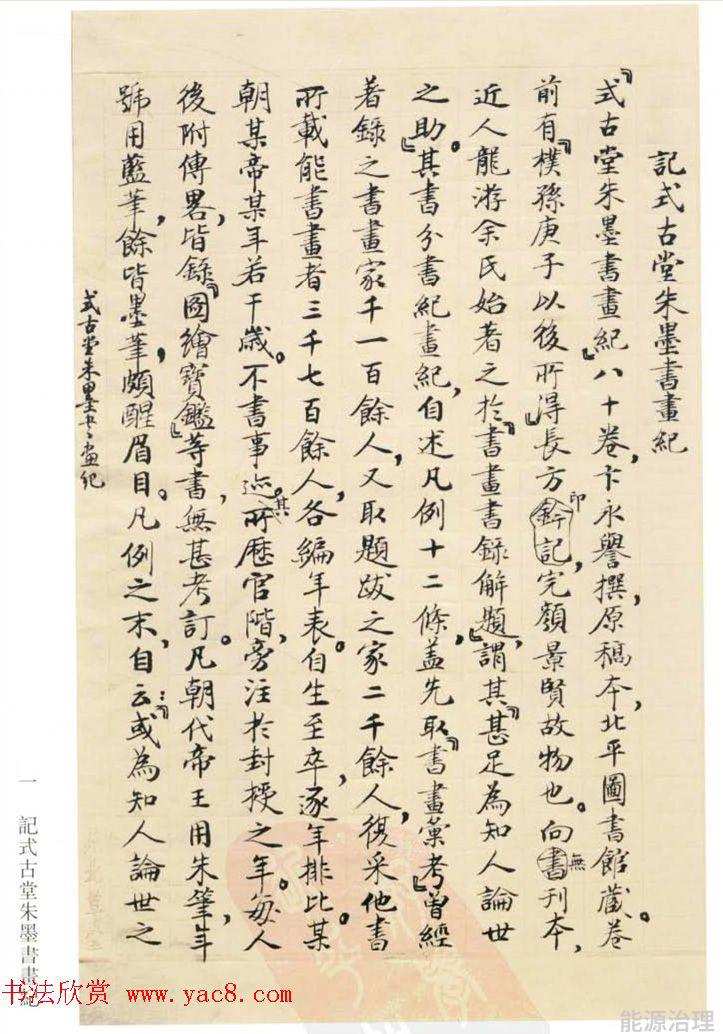 記式古堂朱墨書畫紀
『式古堂朱墨書畫紀』八十卷，卞永譽撰，原稿本，北平圖書館藏。卷
前有『樸孫庚子以後所得』長方鈐記，印完顏景賢故物也。向書無刊本，
近人龍游余氏始著之於『書畫書錄解題』，謂其『甚足為知人論世
之助』。其書分書紀畫紀，自述凡例十二條，蓋先取『書畫彙考』曾經
著錄之書畫家千一百餘人，又取題跋之家二千餘人，復采他書
所載能書畫者三千七百餘人，各編年表。自生至卒，逐年排比。某
朝某帝某年若干歲。不書事迹。其所歷官階，旁注於封授之年。每人
後附傳畧，皆錄『圖繪寶鑑』等書，無甚考訂。凡朝代帝王用朱筆，年
號用藍筆，餘皆墨筆，頗醒眉目。凡例之末，自云：『或為知人論世之
式古堂朱墨書畫紀
一 記式古堂朱墨書畫紀
书法欣赏 www.yac8.com
能源治理